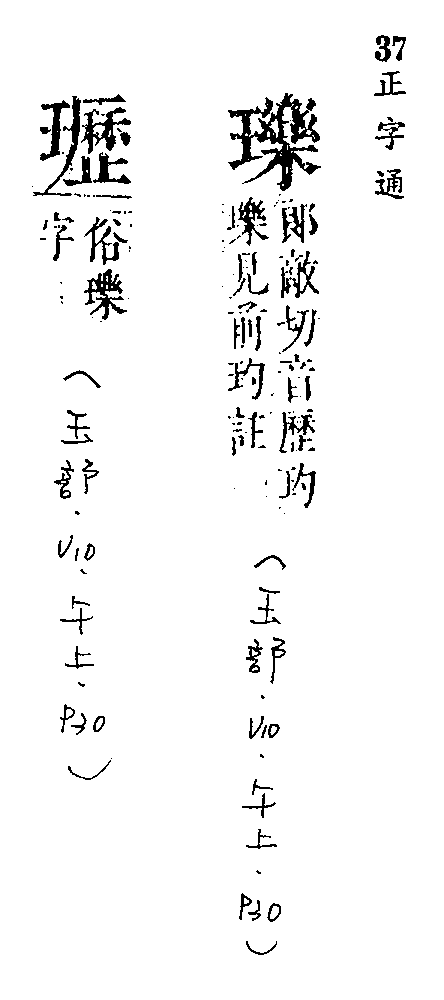 37正字通
瓅
郎敵切音歷玓
瓅見前玓註
(玉部.V10.午上.P30)
瓑
俗瓅
字
(玉部.V10.午上.P30)